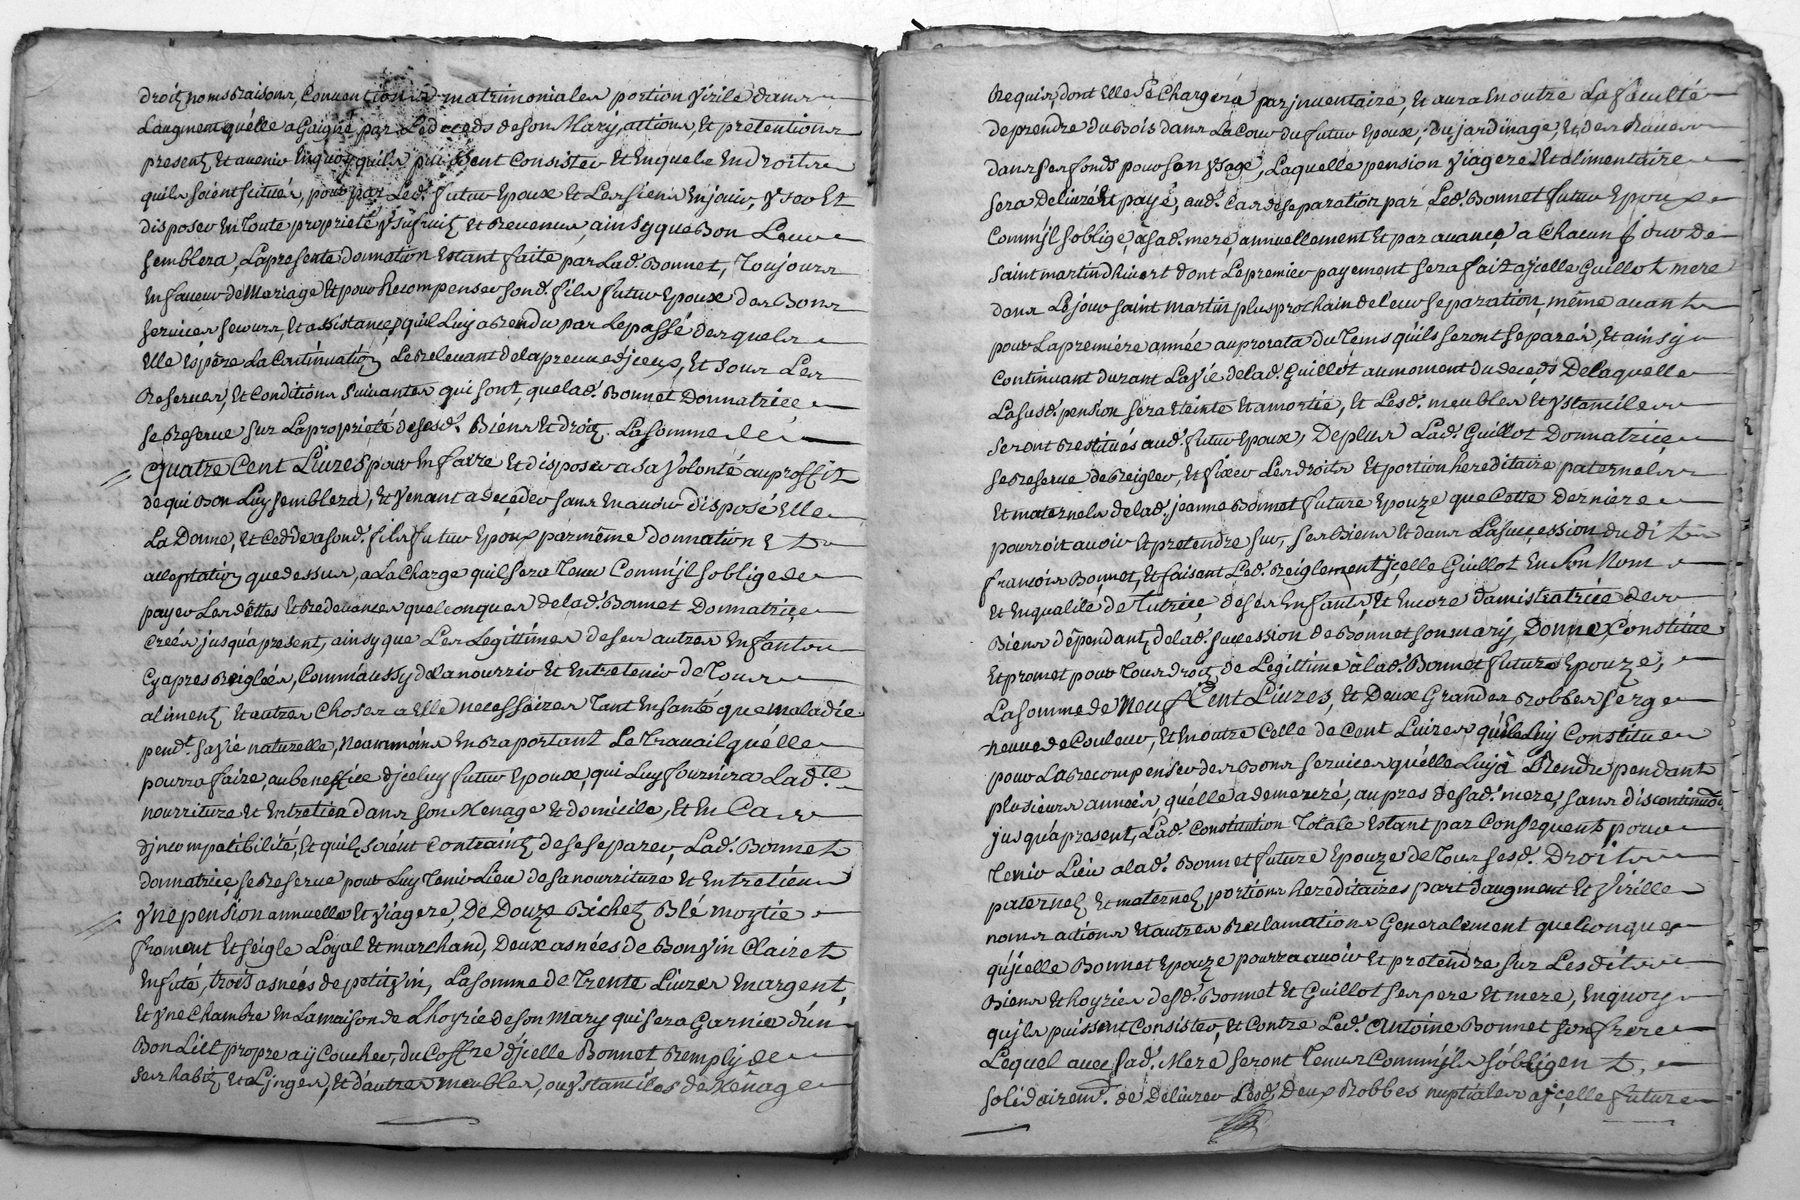 droitz noms Raisons, Conventions matrimoniales portion Virile dans
Laugment quélle a Gaigné par Led deceds de son Mary, actions, Et pretentions
presentz Et avenir En quoy quils puissent Consister Et En quels Endroits
quils soient situés, pour par Led. futur Epoux Et Les siens En jouir, Vser Et
disposer En Toute proprieté Vsufruitz Et Revenus, ainsy que Bon Leur
semblera, La presente donnation Estant faite par Lad. Bonnet, Toujours
En faveur de Mariage Et pour Recompenser sond. fils futur Epoux des Bons
services secours, Et assistances quil Luy a Rendu par Le passé desquels
Elle Espere La Continuation Le Relevant de la preuve djceux, Et sous Les
Reserves, Et Conditions suivantes qui sont, que lad. Bonnet Donnatrice
se Reserve sur La proprieté de sesd. Biens Et droitz La somme de
Quatre Cent Livres pour En faire Et disposer a sa Volonté au proffit
de qui Bon Luy semblera, Et Venant a deceder sans En avoir disposé Elle
La Donne, Et Cedde a sond. fils futur Epoux par même donnation Et
acceptation que dessus, a La Charge quil sera Tenu Comm'jl soblige de
payer Les dettes Et Redevances quelconques de lad. Bonnet Donnatrice
Creés jusquà present, ainsy que Les Legittimes de ses autres Enfants
Cy apres Reiglées, Comm'aussy de La nourrir Et Entretenir de Tous
alimentz Et autres Choses a Elle necessaires Tant En santé que maladie
pendt. sa Vie naturelle, Neanmoins En Raportant Le Travail quélle
pourra faire, au beneffice djceluy futur Epoux, qui Luy fournira Ladte.
nourriture Et Entretien dans son Menage Et domicile, Et En Cas
djncompatibilité, Et quils soient Contraintz de se separer, Lad. Bonnet
donnatrice se Reserve pour Luy Tenir Lieu de sa nourriture Et Entretien
Vne pension annuelle Et Viagere, De Douze Bichetz Blé moytie
froment Et seigle Loyal Et marchand, Deux asnées de Bon Vin Clairet
En futé, trois asnées de petit Vin, La somme de Trente Livres En argent,
Et Vne Chambre En La maison de Lhoyrie de son Mary qui sera Garnie d'un
Bon Lict propre a ÿ Coucher, du Coffre djcelle Bonnet Remply de
ses habitz, Et Linges, Et d'autres meubles, ou Vstanciles de Menage
Requis, dont Elle se Chargera par jnventaire, Et aura En outre La faculté
de prendre du Bois dans La Cour du futur Epoux, du jardinage Et des Raves
dans ses fonds pour son Vsage, Laquelle pension Viagere Et alimentaire
sera Delivré Et payé, aud. Cas de separation par Led. Bonnet futur Epoux
Comm'jl soblige, à sad. mere, annuellement Et par avance a Chacun jour de
saint martin d'hivert dont Le premier payement sera fait a jcelle Guillot mere
dans Le jour saint Martin plus prochain de leur separation, même avant
pour La premiere année au prorata du Tems quils seront separés, Et ainsy
Continuant durant La Vie de lad. Guillot au moment du deceds De laquelle
La susd. pension sera Eteinte Et amortie, Et Lesd. meubles Et Vstanciles
seront Restitués aud. futur Epoux, De plus Lad. Guillot Donnatrice
se Reserve de Reigler, Et fixer Les droits Et portion hereditaire paternels
Et maternels de lad. jeanne Bonnet future Epouze que Cette Derniere
pourroit avoir Et pretendre sur, ses Biens Et dans La succession du dit
francois Bonnet, Et faisant Led. Reiglement jcelle Guillot En son Nom
Et En qualité de Tutrice de ses Enfants, Et Encore damistratrice des
Biens dépendantz de lad. succession de Bonnet son mary, Donne, Constitue
Et promet pour Tous droitz de Legittime à lad. Bonnet future Epouze,
La somme de Neuf Cent Livres, Et Deux Grandes Robbes serge
neuve de Couleur, Et En outre Celle de Cent Livres qu'Elle Luy Constitue
pour La Recompenser des Bons services quélle Luy à Rendu pendant
plusieurs années, quélle a demeuré, au pres de sad. mere, sans discontinuer
jusquà present, Lad. Constitution Totale Estant par Consequent pour
Tenir Lieu a lad. Bonnet future Epouze de Tous sesd. Droits
paternelz Et maternelz portions hereditaires part daugment Et Virille
noms actions Et autres Reclamations Generalement quelconques
qu'jcelle Bonnet Epouze pourra avoir Et pretendre sur Lesdits
Biens Et hoyries desd. Bonnet Et Guillot ses pere Et mere, En quoy
qu'jls puissent Consister, Et Contre Led. Antoine Bonnet son frere
Lequel avec sad. Mere seront Tenus Comm'jls s'obligent,
solidairemt. de Delivrer Lesd. Deux Robbes nuptiales a jcelle future